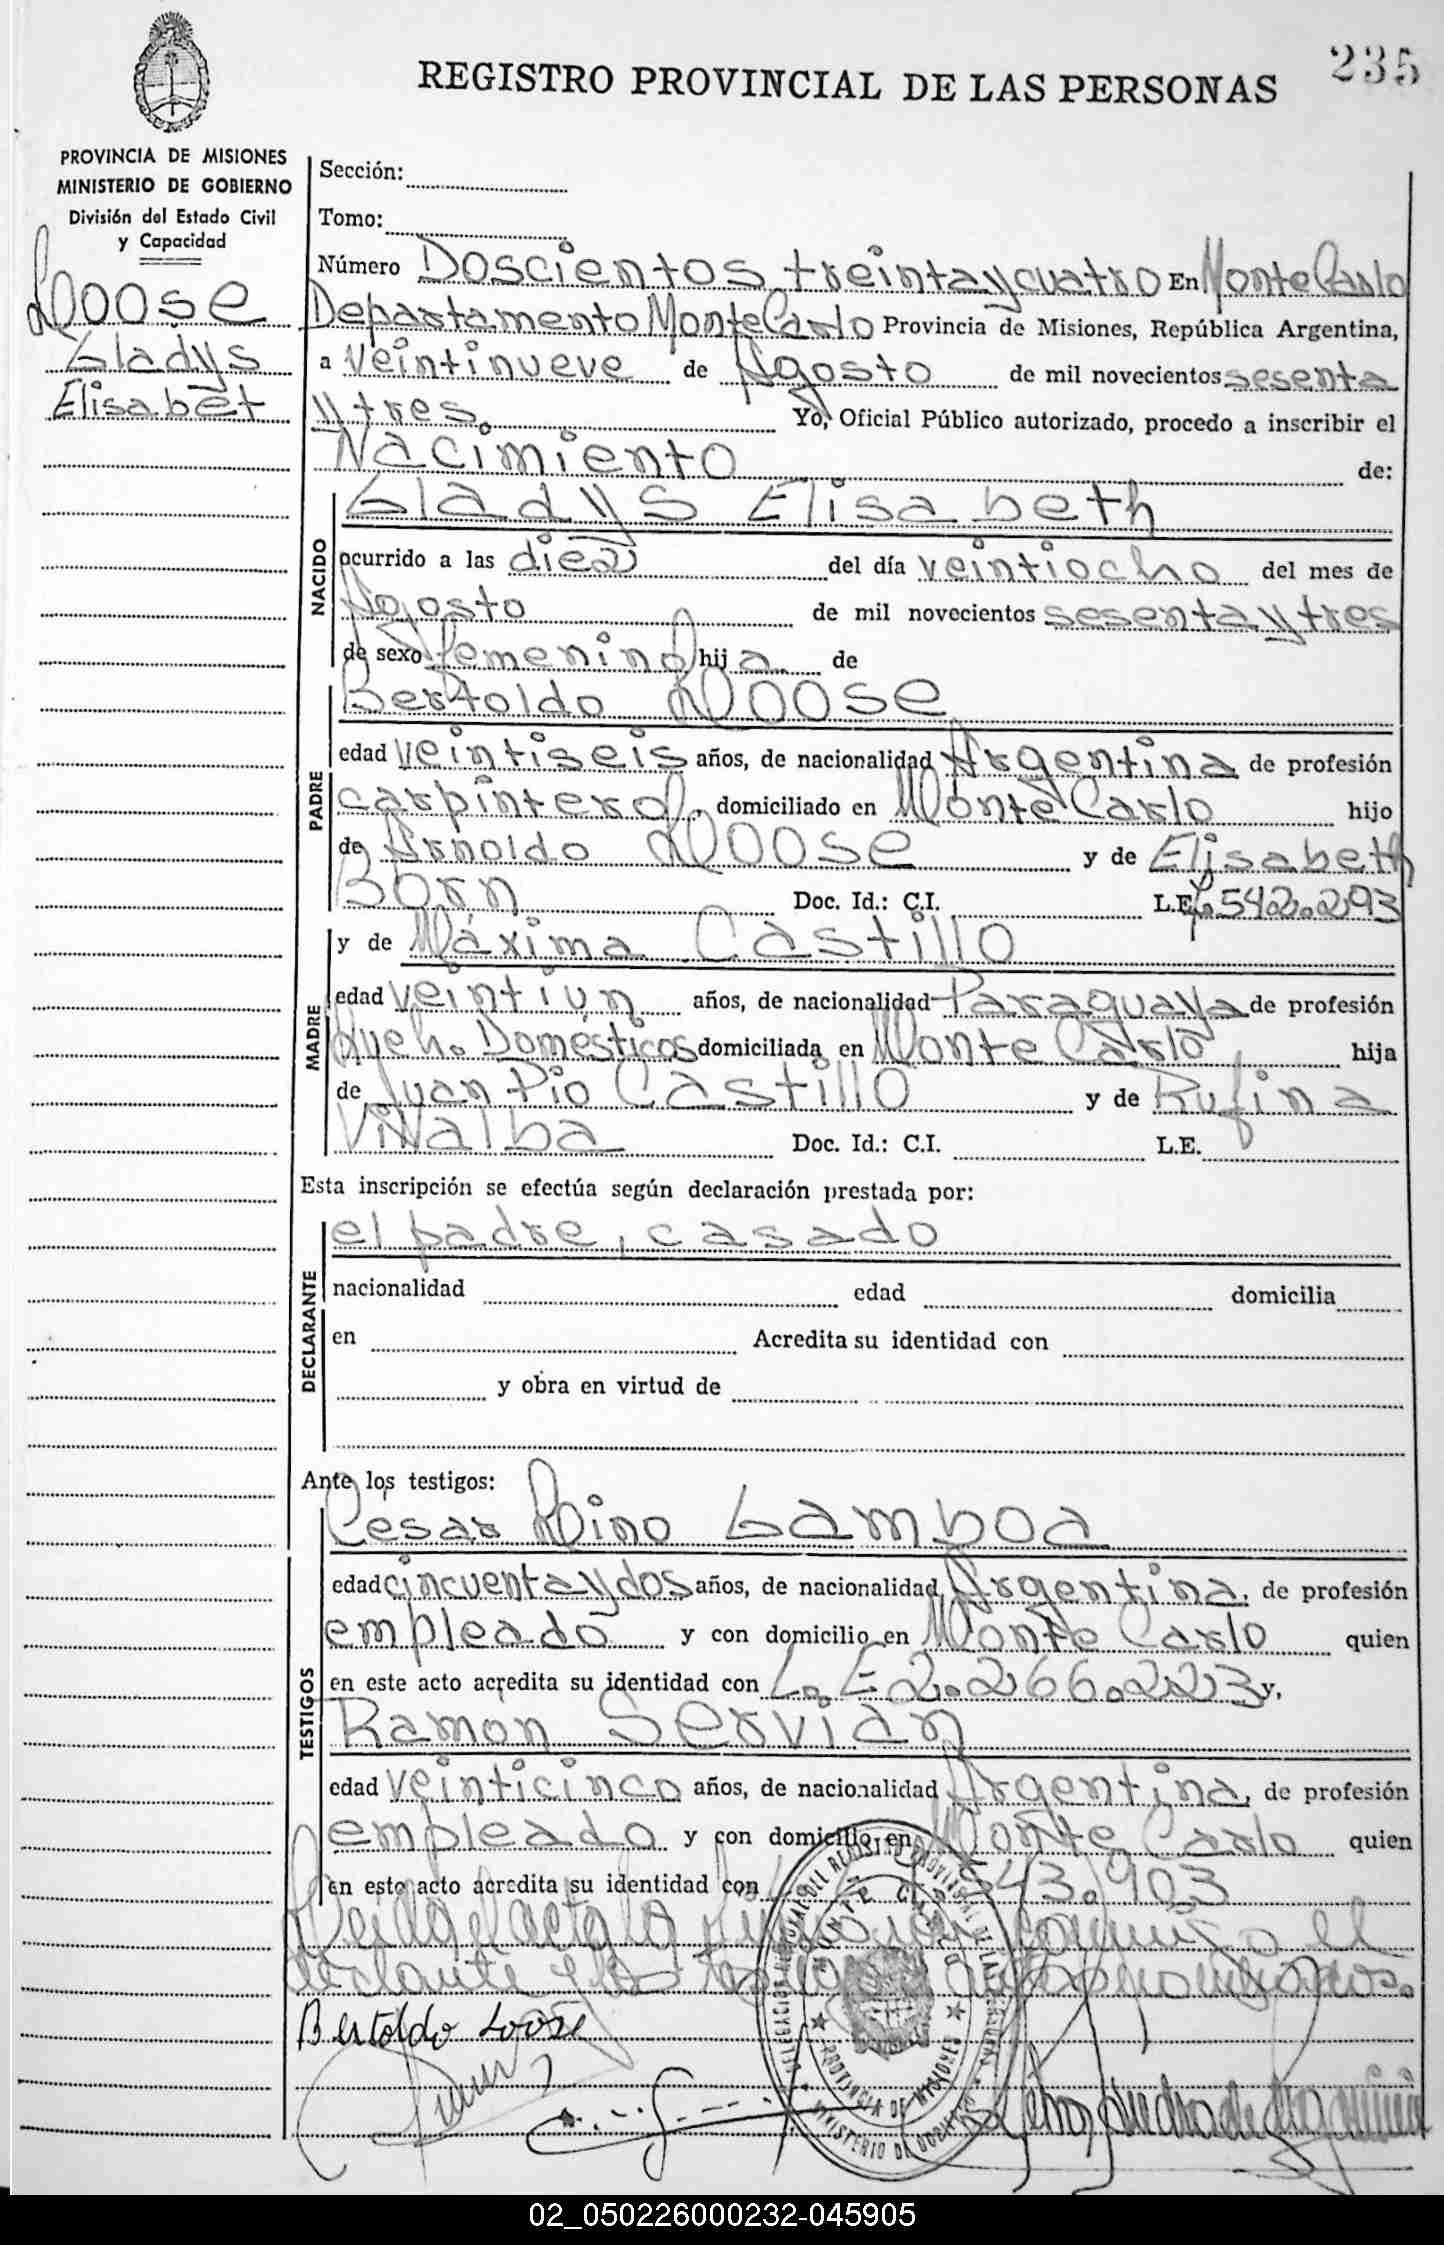 235
REGISTRO PROVINCIAL DE LAS PERSONAS
PROVINCIA DE MISIONES
MINISTERIO DE GOBIERNO
División del Estado Civil
y Capacidad
Loose
Gladys
Elisabet
Sección:
Tomo:
Número Doscientos treinta y cuatro En Monte Carlo
Departamento Monte Carlo Provincia de Misiones, República Argentina,
a veintinueve de Agosto de mil novecientos sesenta
y tres. Yo, Oficial Público autorizado, procedo a inscribir el
Nacimiento de:
NACIDO
Gladys Elisabeth
ocurrido a las diez del día veintiocho del mes de
Agosto de mil novecientos sesenta y tres
de sexo femenino hija de
PADRE
Bertoldo Loose
edad veintiseis años, de nacionalidad Argentina de profesión
carpintero, domiciliado en Monte Carlo hijo
de Arnoldo Loose y de Elisabeth
Born Doc. Id.: C.I. L.E. 7.542.293
MADRE
y de Máxima Castillo
edad veintiun años, de nacionalidad Paraguaya de profesión
Queh. Domésticos domiciliada en Monte Carlo hija
de Juan Pio Castillo y de Rufina
Villalba Doc. Id.: C.I. L.E.
Esta inscripción se efectúa según declaración prestada por:
DECLARANTE
el padre, casado
nacionalidad edad domicilia
en Acredita su identidad con
y obra en virtud de
Ante los testigos:
TESTIGOS
Cesar Lino Gamboa
edad cincuenta y dos años, de nacionalidad Argentina, de profesión
empleado y con domicilio en Monte Carlo quien
en este acto acredita su identidad con L.E 2.266.223 y,
Ramon Servian
edad veinticinco años, de nacionalidad Argentina, de profesión
empleado y con domicilio en Monte Carlo quien
en este acto acredita su identidad con 543.903
Leida el acta la conmigo el
declarante y los testigos
Bertoldo Loose
MONTE CARLO
PROVINCIA DE MISIONES
MINISTERIO DE GOBIERNO
02_050226000232-045905